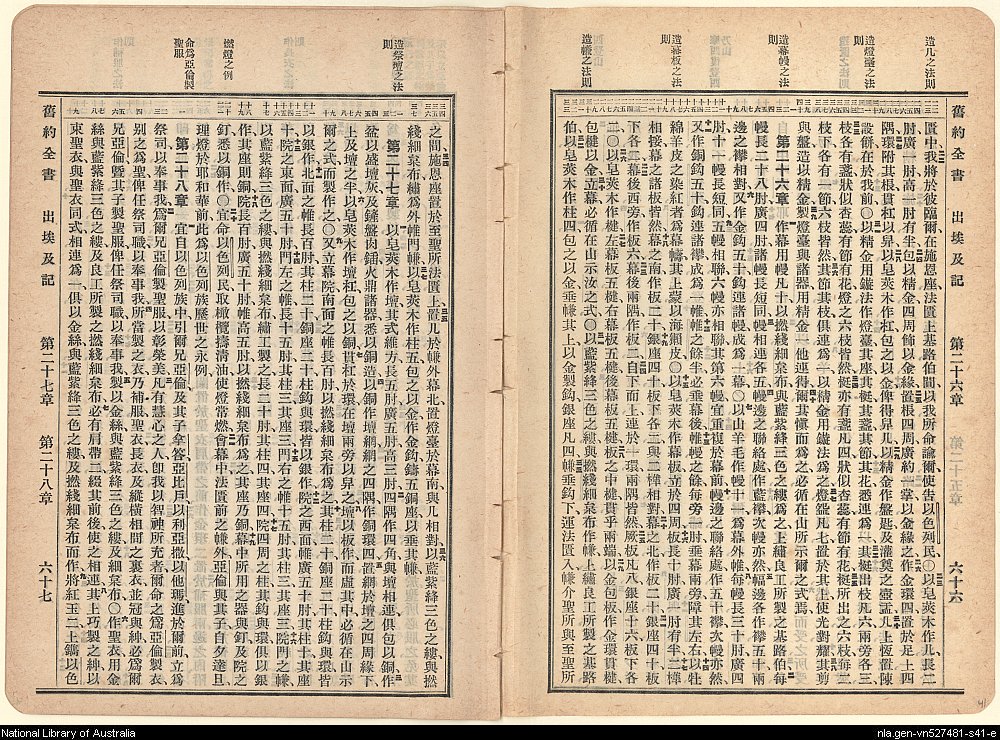 造几之法則
造燈臺之法則
造幕幔之法則
造幕板之法則
造㡘之法則
舊約全書 出埃及記 第二十六章 第二十五章 六十六
匱中我將於彼臨爾在施恩座法匱上基路伯間以我所命諭爾使告以色列民〇以皂莢木作几長二
肘廣一肘高一肘有半包以精金四周飾以金緣置根四周廣約一掌以金緣之作金環四置於足上四
隅環附其根貫杠以舁几以皂莢木作杠包之以金俾得舁几以精金作盤匙及灌奠之壺盂几上恆置陳
設餅在於我前〇以精金用鏇法作燈臺其座其挺其盞其節其花悉運爲一其挺出枝凡六兩旁各三
枝各有盞狀似杏蕊有節有花燈之六枝皆然挺亦有盞凡四狀似杏蕊有節有花挺所出之六枝每二
枝下各有一節六枝皆然其節其枝俱連爲一以精金用鏇法爲之燈盞凡七置於其上使光對耀其剪
與盤造以精金製燈臺與諸器用精金一他連得爾其愼而爲之必循在山所示爾之式焉
第二十六章 作幕用幔凡十以撚綫細枲布與藍紫絳三色之縷爲之用良工所製之基路伯每
幔長二十八肘廣四肘諸幔長短同五幔相連各五幔邊之聯絡處作藍襻次幔亦然幅邊各作襻五十兩
邊之襻相對又作金鈎五十鈎連諸幔成爲一幕〇以山羊毛作幔十一爲幕外帷每幔長三十肘廣四
肘十一幔長短同五幔相聯六幔亦相聯其第六幔宜重複於幕前幔邊之聯絡處作五十襻次幔亦然
又作銅鈎五十鈎連諸襻成爲一帷帷之餘半必垂幕後幔之餘每旁一肘垂幕兩旁障其左右以牡
綿羊皮之染紅者爲幕幬其上蒙以海獺皮〇以皂莢木作幕板立於四周板長十肘廣一肘有半二榫
相接幕之諸板皆然幕之南作板二十銀座四十板下各二與二榫相對幕之北作板二十銀座四十每板
二〇以皂莢木作楗左幕板五楗右幕板五楗後幕板五楗幕板之中楗貫乎兩端以金包板作金環貫楗
包楗以金立幕必循在山示汝之式〇以藍紫絳三色之縷與撚綫細枲布作㡘上繡良工所製之基路
伯以皂莢木作柱四包之以金垂㡘其上以金製鈎銀座凡四㡘垂鈎下運法匱入㡘介聖所與至聖所
造祭壇之法則
燃燈之例
命爲亞倫製聖服
之間施恩座置於至聖所法匱上置几於㡘外幕北置燈臺於幕南與几相對以藍紫絳三色之縷與撚
綫細枲布繡爲外帷門㡘以皂莢木作柱五包之以金作金鈎鑄五銅座以垂其㡘
第二十七章 以皂莢木作壇其式維方長五肘廣五肘高三肘四隅作角四角與壇相連俱包以銅作
盆以盛壇灰及鏟盤肉鍤火鼎諸器悉以銅造以銅作壇網網之四隅作銅環四置網於壇之四周緣下
上及壇之半以皂莢木作壇杠包之以銅貫杠於環在壇兩旁以舁之壇以板作而虛其中必循在山示
爾之式而製作之〇又立幕院南面之帷長百肘以撚綫細枲布爲之其柱二十銅座二十柱鈎與環皆
以銀作北面之帷長百肘其柱二十銅座二十柱鈎與環皆以銀作院之西面帷廣五十肘其柱十其座
十院之東面廣五十肘門左之帷長十五肘其柱三其座三門右之帷十五肘其柱三其座三院門之㡘
以藍紫絳三色之縷與撚綫細枲布繡工製之長二十肘其柱四其座四院四周之柱其鈎與環俱以銀
作其座則銅院長百肘廣五十肘帷高五肘以撚綫細枲布爲之其座乃銅幕中所用之器與釘及院之
釘悉以銅作〇宜命以色列民取橄欖擣淸油使燈常燃會幕中法匱前之㡘外亞倫與其子自夕達旦
理燈於耶和華前此爲以色列族歷世之永例
第二十八章 宜自以色列族中引爾兄亞倫及其子拿答亞比戶以利亞撒以他瑪進於爾前立爲
祭司以奉事我爲爾兄亞倫製聖服以彰榮美凡有慧心之人卽我以智神所充者爾命之爲亞倫製衣
別之爲聖俾任祭司職以奉事我所當製之衣乃補服聖衣長衣及縱橫相間之裏衣並冠與紳必爲爾
兄亞倫暨其子製聖服俾任祭司職以奉事我製以金絲與藍紫絳三色之縷及細枲布〇作聖衣用金
絲與藍紫絳三色之縷及良工所製之撚綫細枲布必有肩帶二綴其前後使之相連其上巧製之紳以
束聖衣與聖衣同式相連爲一俱以金絲與藍紫絳三色之縷及撚綫細枲布而作將紅玉二上鐫以色
舊約全書 出埃及記 第二十七章 第二十八章 六十七
National Library of Australia
nla.gen-vn527481-s41-e